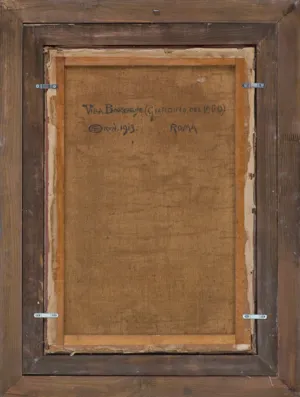 Villa Borghese (Giardino del lago)
1913. ROMA